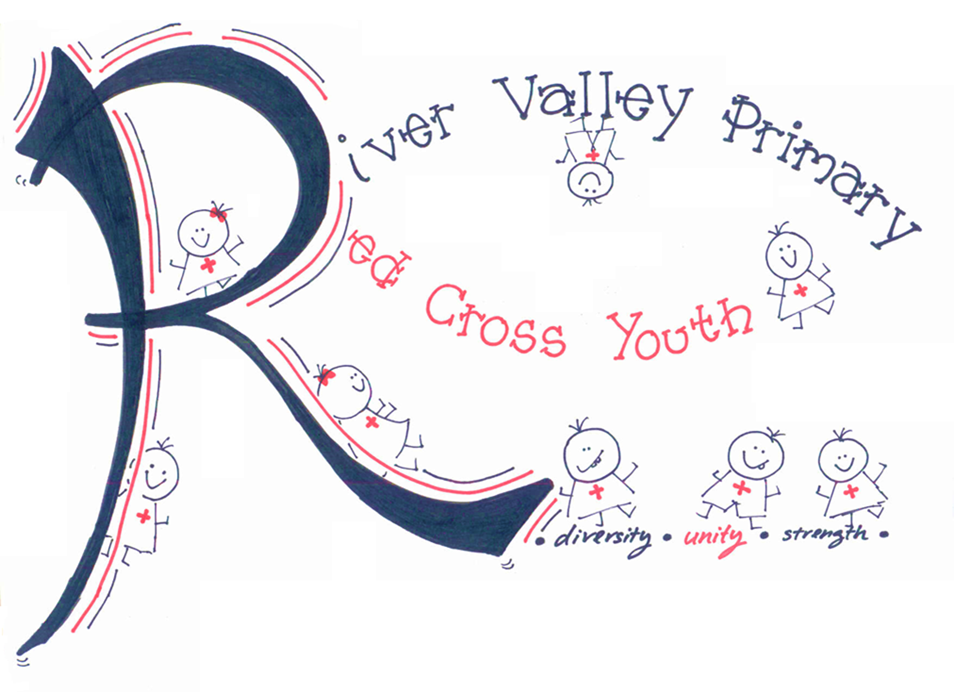 River Valley Primary
Red Cross Youth
• diversity • unity • strength •